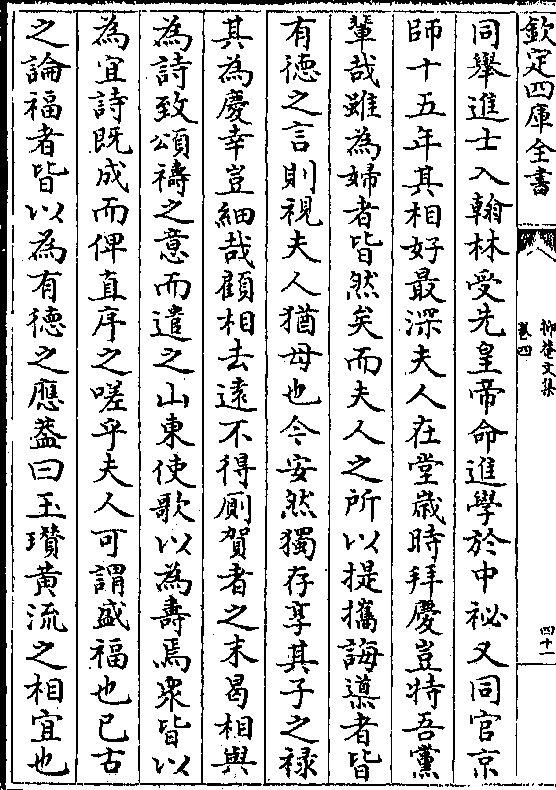 欽定四庫全書
抑菴文集
卷四
四十一
同舉進士入翰林受先皇帝命進學於中祕又同官京
師十五年其相好最深夫人在堂歲時拜慶豈特吾黨
輩哉雖為婦者皆然矣而夫人之所以提攜誨導者皆
有德之言則視夫人猶母也今安然獨存享其子之禄
其為慶幸豈細哉顧相去逺不得厠賀者之末曷相與
為詩致頌禱之意而遣之山東使歌以為壽焉衆皆以
為宜詩既成而俾直序之嗟乎夫人可謂盛福也已古
之論福者皆以為有德之應葢曰玉瓚黄流之相宜也